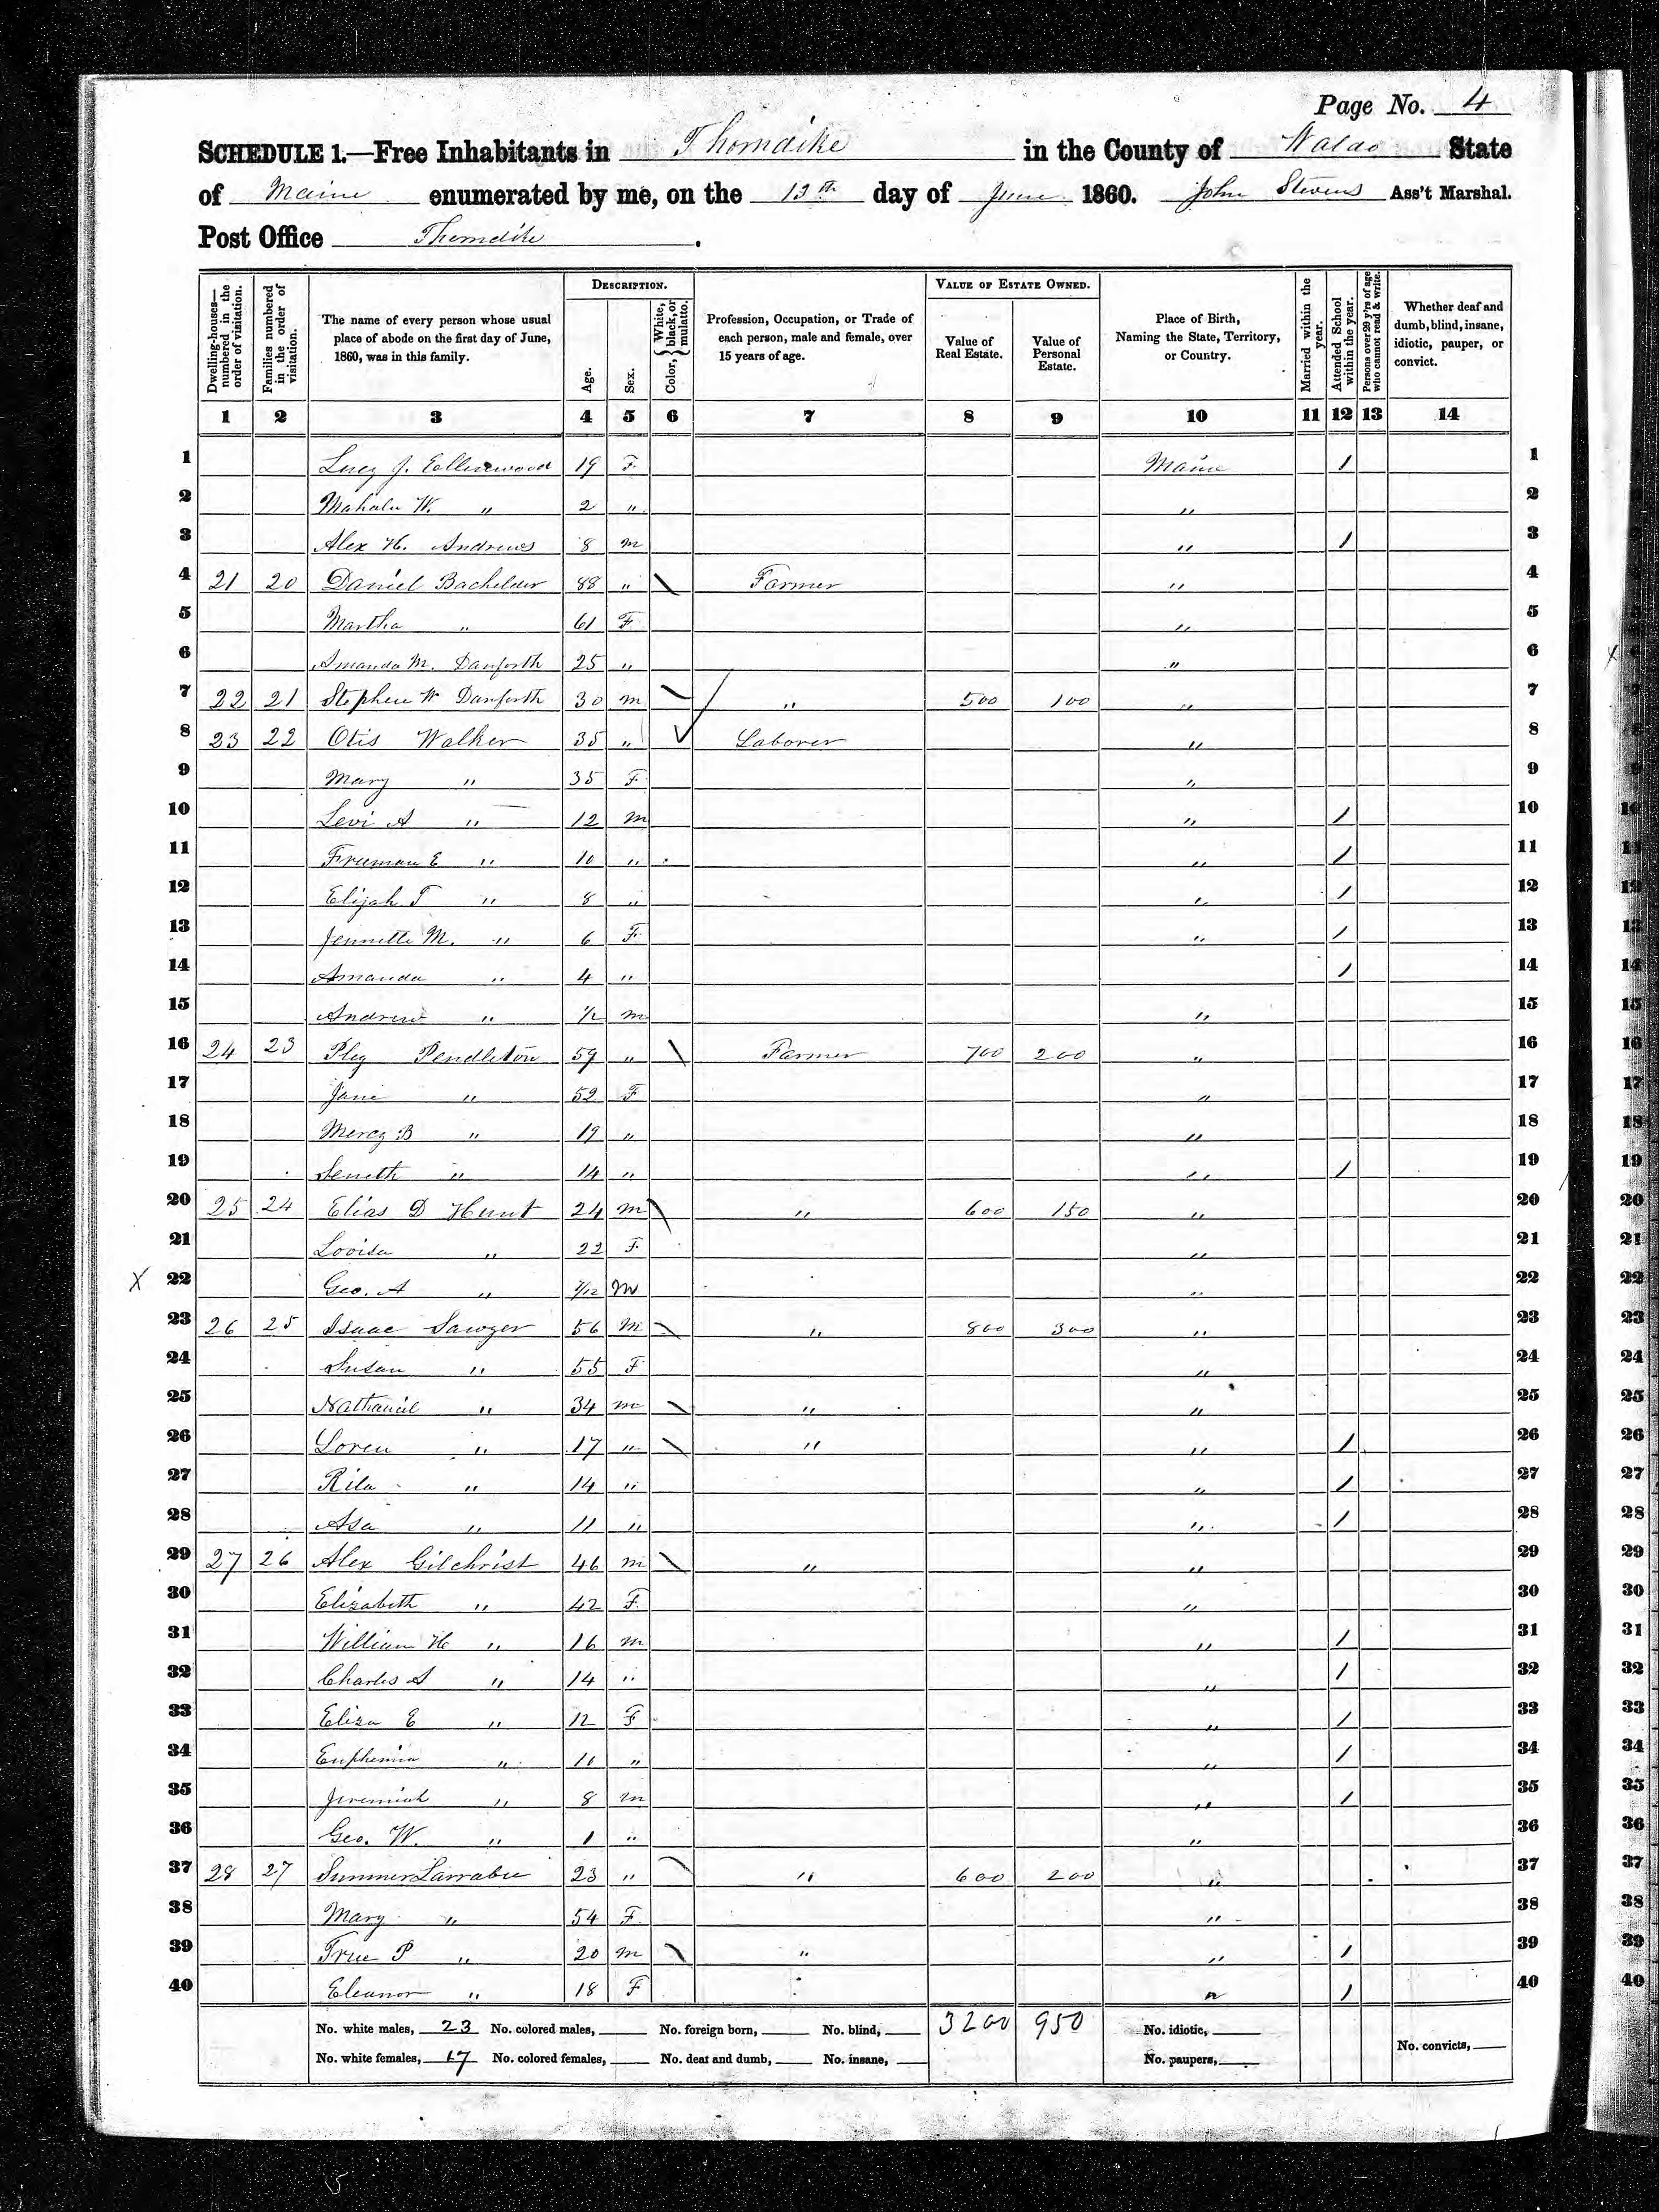 Page No. 4
SCHEDULE 1.—Free Inhabitants in Thorndike in the County of Waldo State
of Maine enumerated by me, on the 13th day of June 1860. John Stevens Ass't Marshal.
Post Office Thorndike.
DESCRIPTION. VALUE OF ESTATE OWNED.
Dwelling-houses—numbered in the order of visitation. Families numbered in the order of visitation. The name of every person whose usual place of abode on the first day of June, 1860, was in this family. Age. Sex. Color, { White, black, or mulatto. Profession, Occupation, or Trade of each person, male and female, over 15 years of age. Value of Real Estate. Value of Personal Estate. Place of Birth, Naming the State, Territory, or Country. Married within the year. Attended School within the year. Persons over 20 y'rs of age who cannot read & write. Whether deaf and dumb, blind, insane, idiotic, pauper, or convict.
1 2 3 4 5 6 7 8 9 10 11 12 13 14
1 Lucy J. Ellinwood 19 F Maine / 1
2 Mahala W. " 2 " " 2
3 Alex H. Andrews 8 m " / 3
4 21 20 Daniel Bachelder 88 " \ Farmer " 4
5 Martha " 61 F " 5
6 Amanda M. Danforth 25 " " 6
7 22 21 Stephen W Danforth 30 m \ " 500 100 " 7
8 23 22 Otis Walker 35 " ✓ Laborer " 8
9 Mary " 35 F " 9
10 Levi A " 12 m " / 10
11 Freeman E " 10 " " / 11
12 Elijah T " 8 " " / 12
13 Jennette M. " 6 F " / 13
14 Amanda " 4 " / 14
15 Andrew " 1/2 m " 15
16 24 23 Pleg Pendleton 59 " \ Farmer 700 200 " 16
17 Jane " 52 F " 17
18 Mercy B " 19 " " 18
19 Seneth " 14 " " / 19
20 25 24 Elias D Hunt 24 m \ " 600 150 " 20
21 Lovisa " 22 F " 21
X 22 Geo. A " 7/12 M " 22
23 26 25 Isaac Sawyer 56 m \ " 800 300 " 23
24 Susan " 55 F " 24
25 Nathaniel " 34 m \ " " 25
26 Loren " 17 " \ " " / 26
27 Rila " 14 " " / 27
28 Asa " 11 " " / 28
29 27 26 Alex Gilchrist 46 m \ " " 29
30 Elizabeth " 42 F " 30
31 William H " 16 m " / 31
32 Charles S " 14 " " / 32
33 Eliza E " 12 F " / 33
34 Euphemia " 10 " " / 34
35 Jeremiah " 8 m " / 35
36 Geo. W. " 1 " " 36
37 28 27 Sumner Larrabee 23 " \ " 600 200 " 37
38 Mary " 54 F " 38
39 True P " 20 m \ " " / 39
40 Eleanor " 18 F " / 40
No. white males, 23 No. colored males, No. foreign born, No. blind, 3200 950 No. idiotic,
No. white females, 17 No. colored females, No. deaf and dumb, No. insane, No. paupers, No. convicts,
5